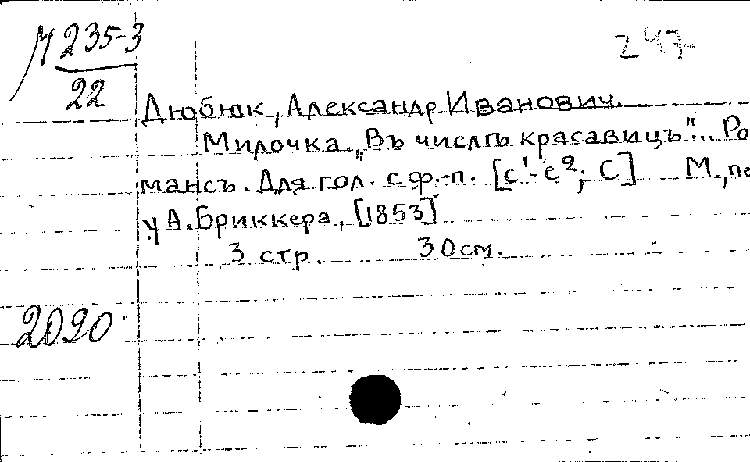 М 235-3
22
247
Дюбюк, Александр Иванович.
Милочка. „Въ числѣ красавицъ“... Ро
мансъ. Для гол. с ф.-п. [c¹-e²; C] М., пе
у А. Бриккера, [1853]
3 стр. 30 см.
2020